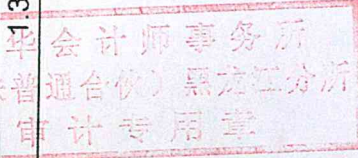 1.3
华会计师事务所
普通合伙）黑龙江分所
审计专用章